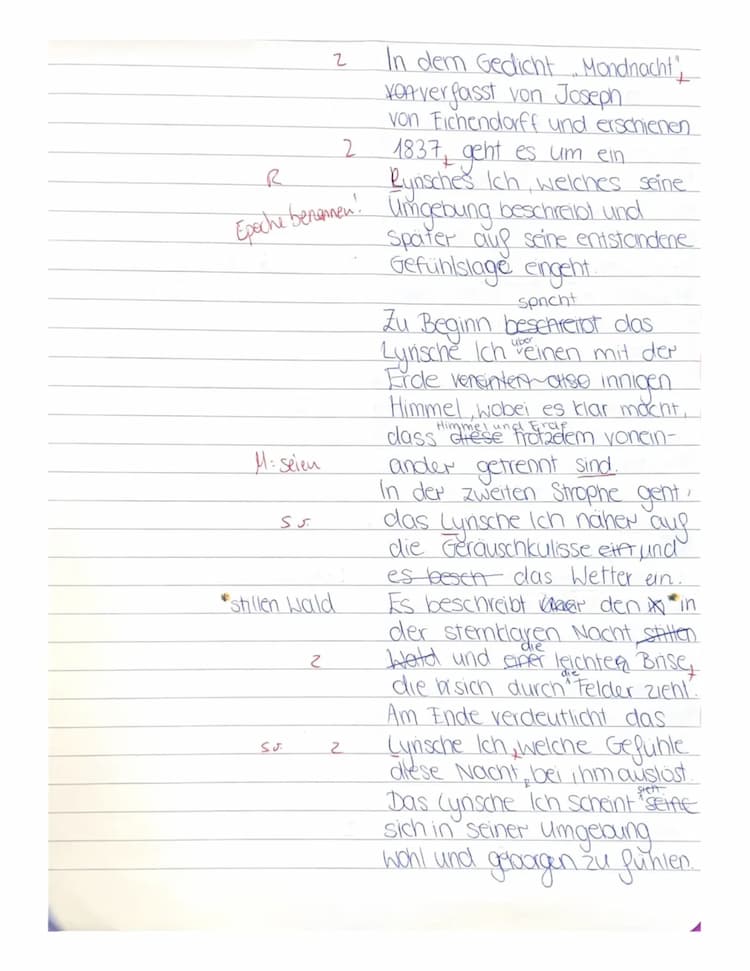 Z In dem Gedicht „Mondnacht",
von verfasst von Joseph
von Eichendorff und erschienen
Z 1837, geht es um ein
R Lyrisches Ich, welches seine
Epoche benennen! Umgebung beschreibt und
später auf seine entstandene
Gefühlslage eingeht.
spricht
Zu Beginn beschreibt das
Lyrische Ich über einen mit der
Erde vereinten also innigen
Himmel, wobei es klar macht,
Himmel und Erde
dass diese trotzdem vonein-
M: seien ander getrennt sind.
In der zweiten Strophe geht
s.o. das Lyrische Ich näher auf
die Geräuschkulisse ein und
es besch das Wetter ein.
*stillen Wald Es beschreibt den * in
der sternklaren Nacht stillen
die
Z Wald und einer leichten Brise,
die
die sich durch Felder zieht.
Am Ende verdeutlicht das
s.o. Z Lyrische Ich, welche Gefühle
diese Nacht, bei ihm auslöst.
sich
Das Lyrische Ich scheint seine
sich in seiner Umgebung
wohl und geborgen zu fühlen.